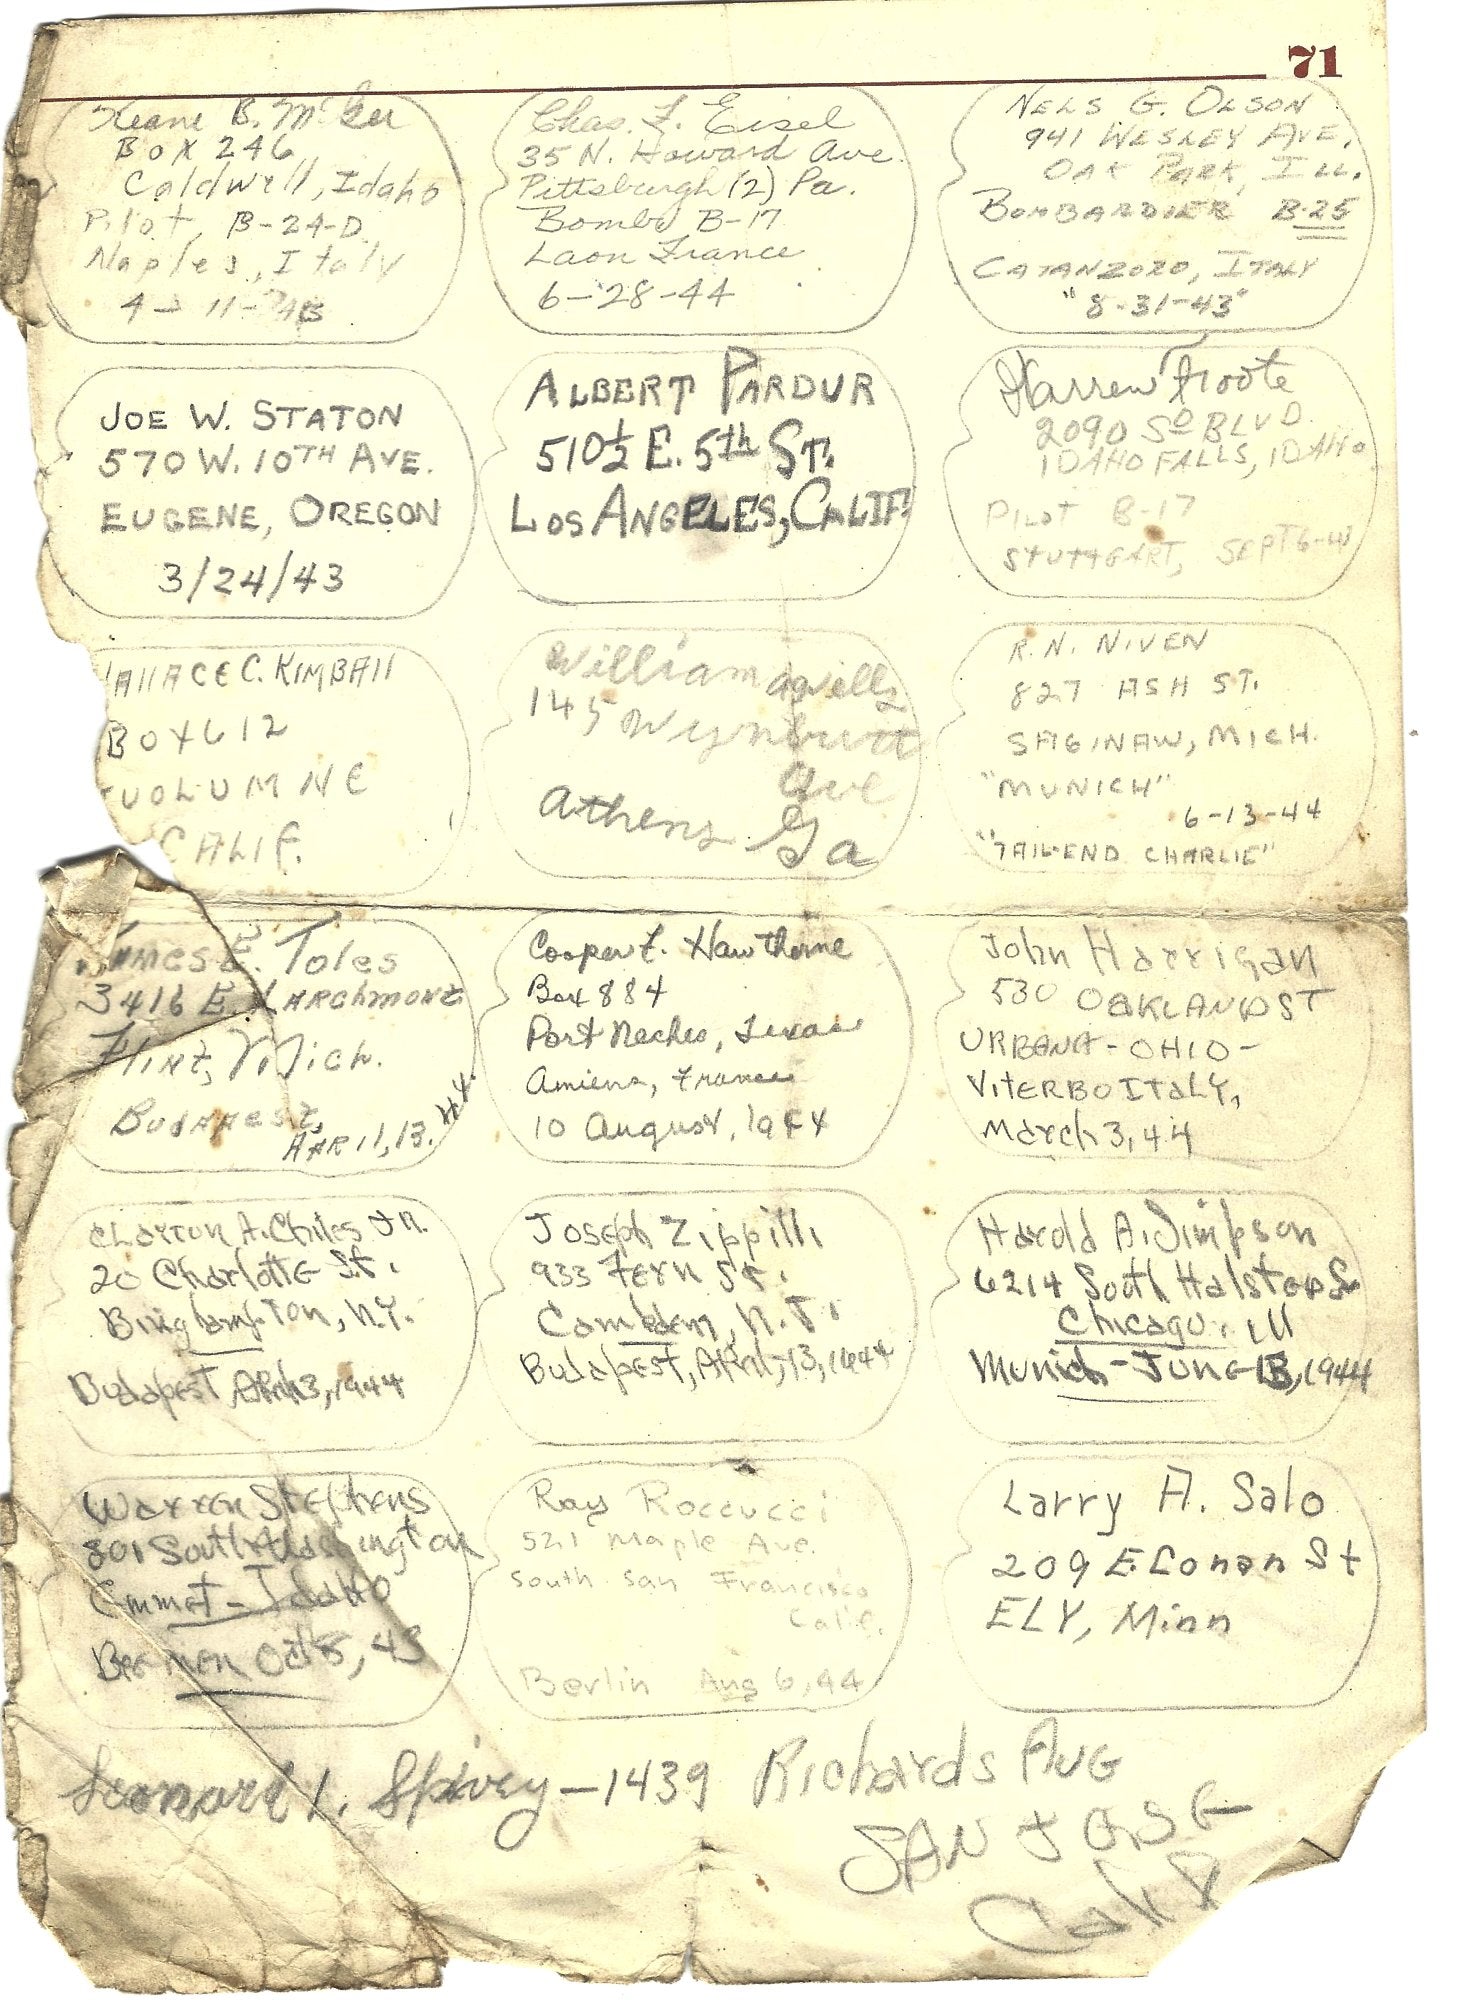 71
Keane B. McGee
Box 246
Caldwell, Idaho
Pilot B-24-D
Naples, Italy
4-11-43
Chas. F. Eisel
35 N. Howard Ave.
Pittsburgh (2) Pa.
Bombr B-17
Laon France
6-28-44
NELS G. OLSON
941 WESLEY AVE.
OAK PARK, ILL.
BOMBARDIER B-25
CATANZORO, ITALY
"8-31-43"
JOE W. STATON
570 W. 10TH AVE.
EUGENE, OREGON
3/24/43
ALBERT PARDUR
510½ E. 5th ST.
LOS ANGELES, CALIF.
Warren Foote
2090 SO BLVD.
IDAHO FALLS, IDAHO
PILOT B-17
STUTTGART, SEPT 6-43
ALLACE C. KIMBALL
BOX 612
UOLUMNE
CALIF.
William Wells
145 Wynburn
Ave
Athens Ga
R. N. NIVEN
827 ASH ST.
SAGINAW, MICH.
"MUNICH"
6-13-44
"TAIL-END CHARLIE"
James E. Toles
3416 E. LARCHMONT
Flint, Mich.
BUDAPEST,
APRIL, 13. 44.
Cooper F. Hawthorne
Box 884
Port Neches, Texas
Amiens, France
10 August, 1944
John Harrigan
530 OAKLAND ST
URBANA - OHIO -
VITERBO ITALY,
March 3, 44
Clayton A. Chiles JR.
20 Charlotte St.
Binghampton, N.Y.
Budapest, April 3, 1944
Joseph Zippilli
933 Fern St.
Camden, N.J.
Budapest, April, 13, 1944
Harold A. Simpson
6214 South Halsted St
Chicago, Ill
Munich - June 13, 1944
Warren Stephens
801 South Washington
Emmet - Idaho
Bremen Oct 8, 43
Ray Roccucci
521 Maple Ave.
South San Francisco
Calif.
Berlin Aug 6, 44
Larry A. Salo
209 E. Conan St
ELY, Minn
Leonard L. Spivey - 1439 Richards AUG
SAN JOSE
Calif